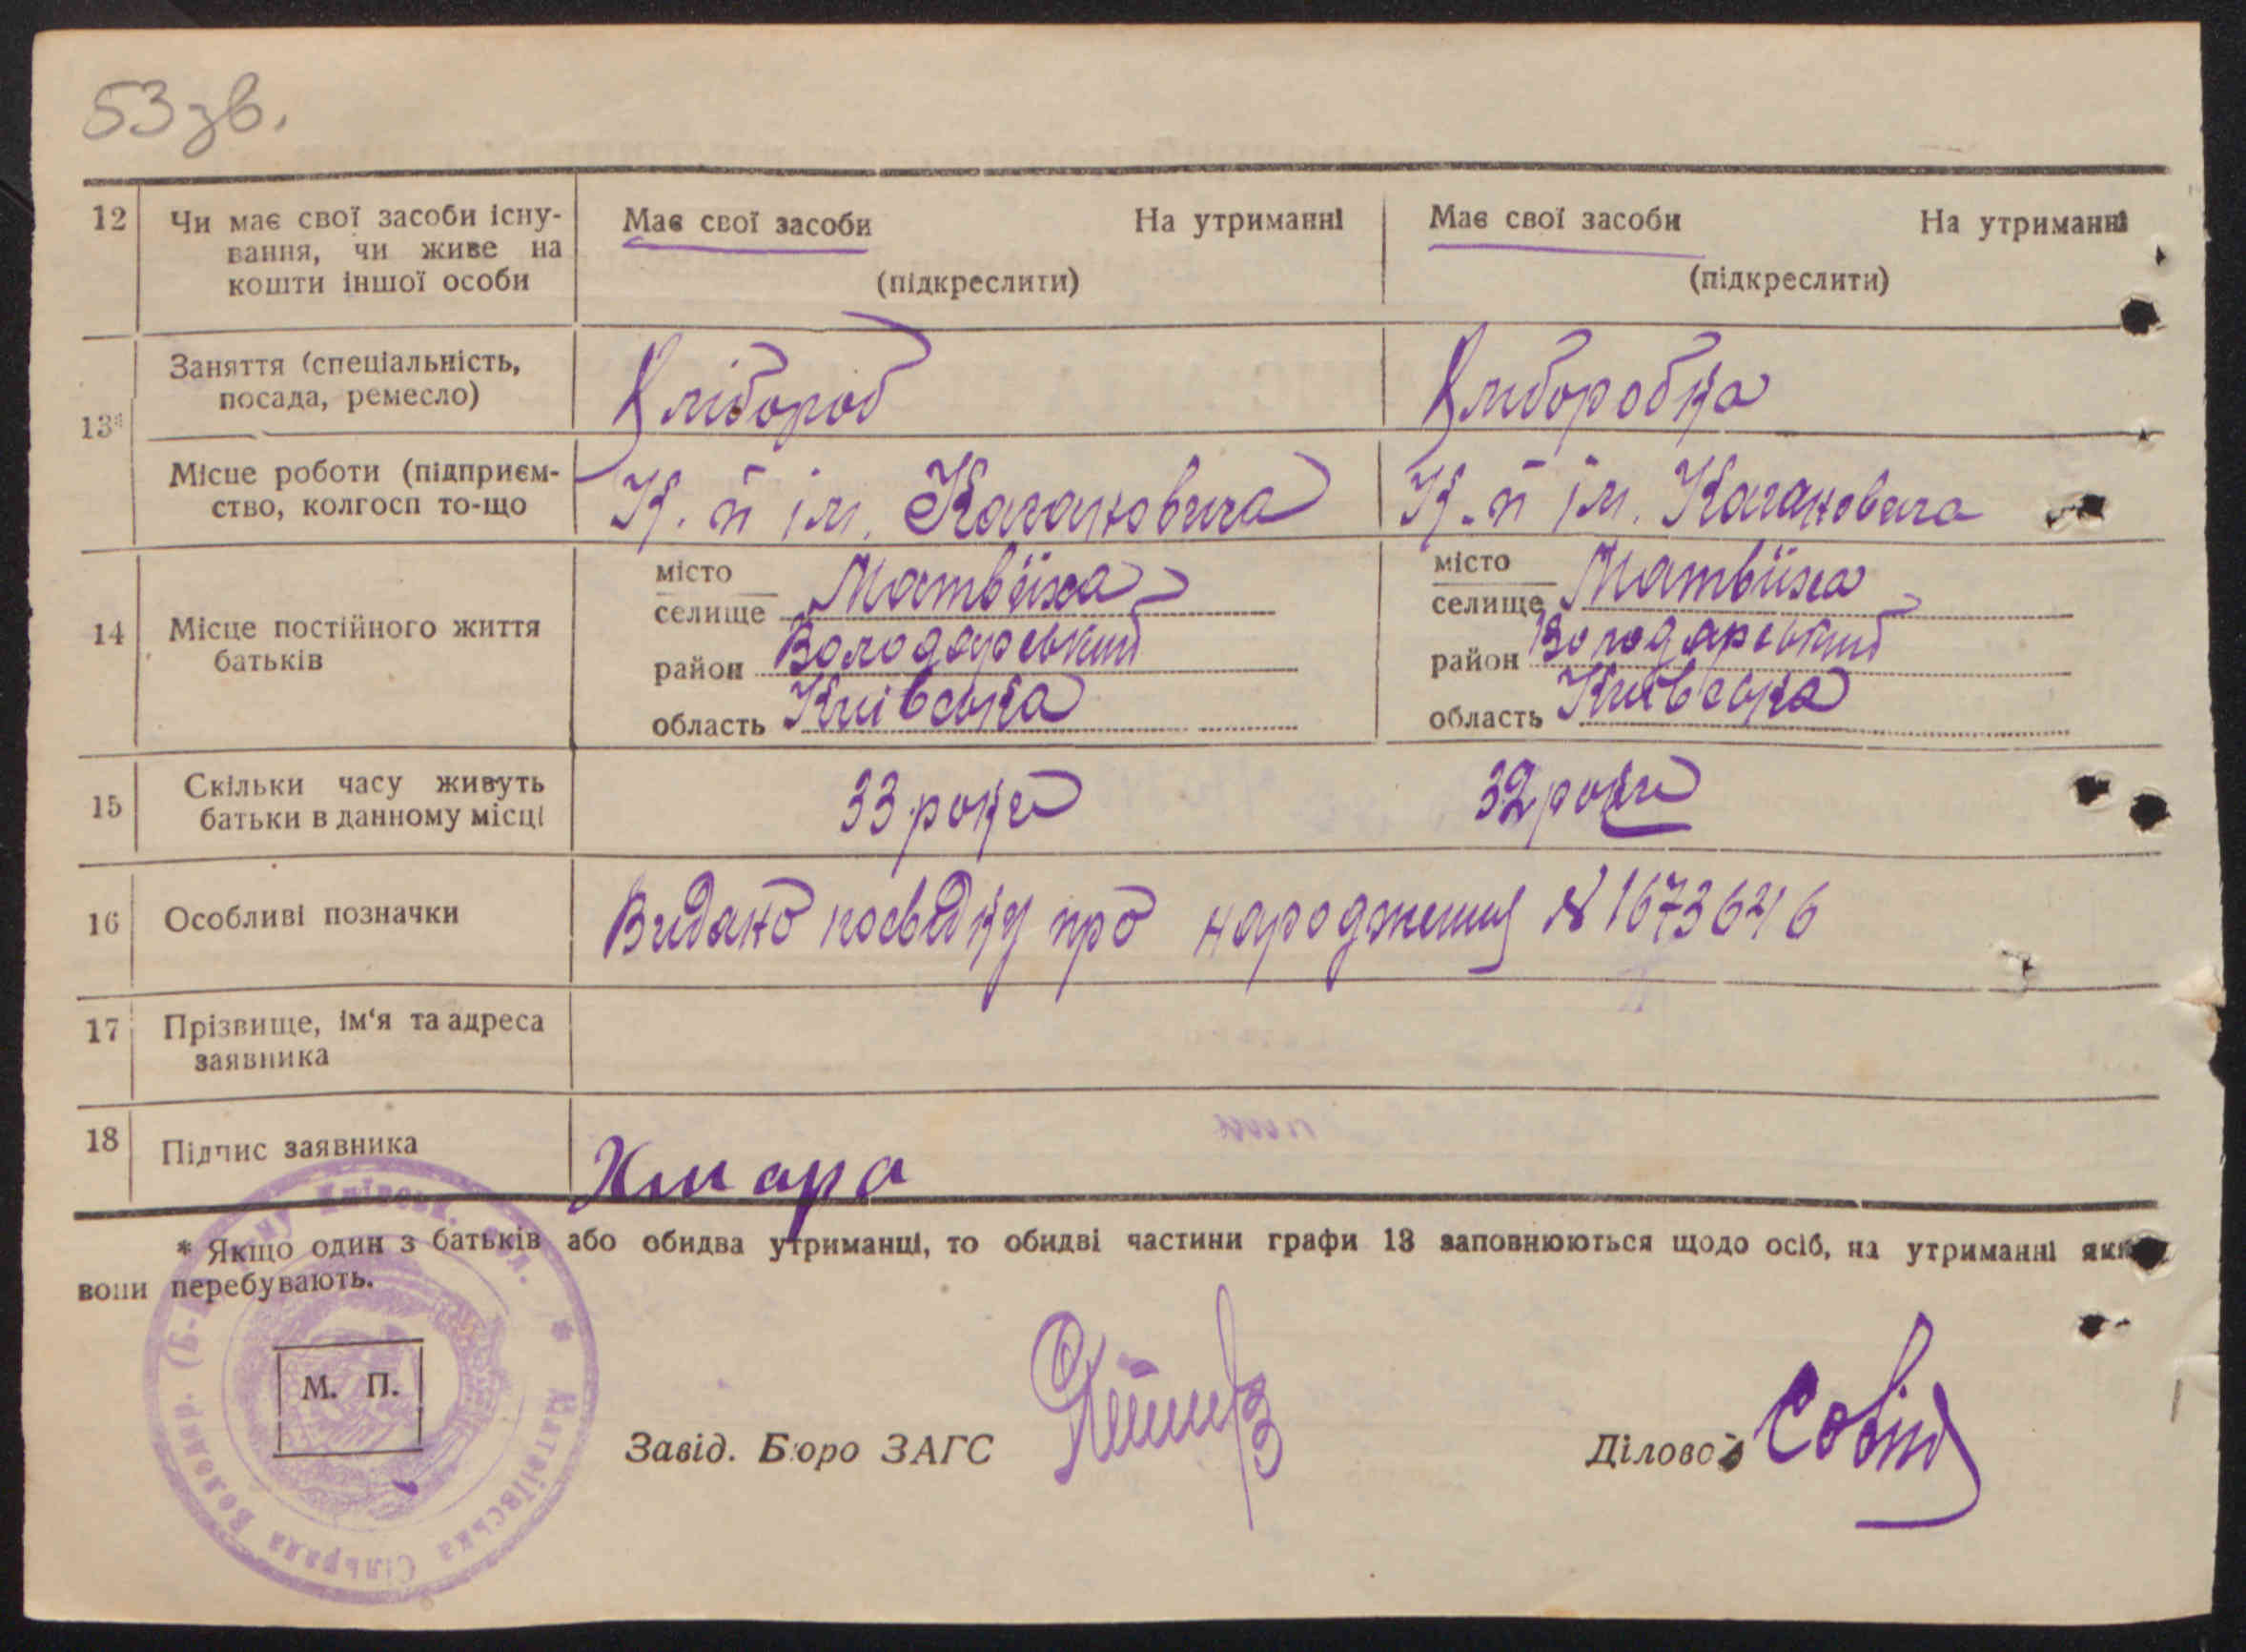 53 зв.
12 Чи має свої засоби існу-
вання, чи живе на
кошти іншої особи
Має свої засоби На утриманні
(підкреслити)
Має свої засоби На утриманні
(підкреслити)
13*
Заняття (спеціальність,
посада, ремесло)
Хлібороб
Хлиборобка
Місце роботи (підприєм-
ство, колгосп то-що
К. п ім. Кагановича
К. п ім. Кагановича
14 Місце постійного життя
батьків
місто
селище Матвіїха
район Володарський
область Київська
місто
селище Матвіїха
район Володарський
область Київська
15 Скільки часу живуть
батьки в данному місці
33 роки
32 роки
16 Особливі позначки
Видано посвідку про народження №
17 Прізвище, ім'я та адреса
заявника
18 Підпис заявника
Хмара
* Якщо один з батьків або обидва утриманці, то обидві частини графи 13 заповнюються щодо осіб, на утриманні яких
вони перебувають.
М. П.
Завід. Бюро ЗАГС
Діловод
Матвіївська Сільрада Володар.